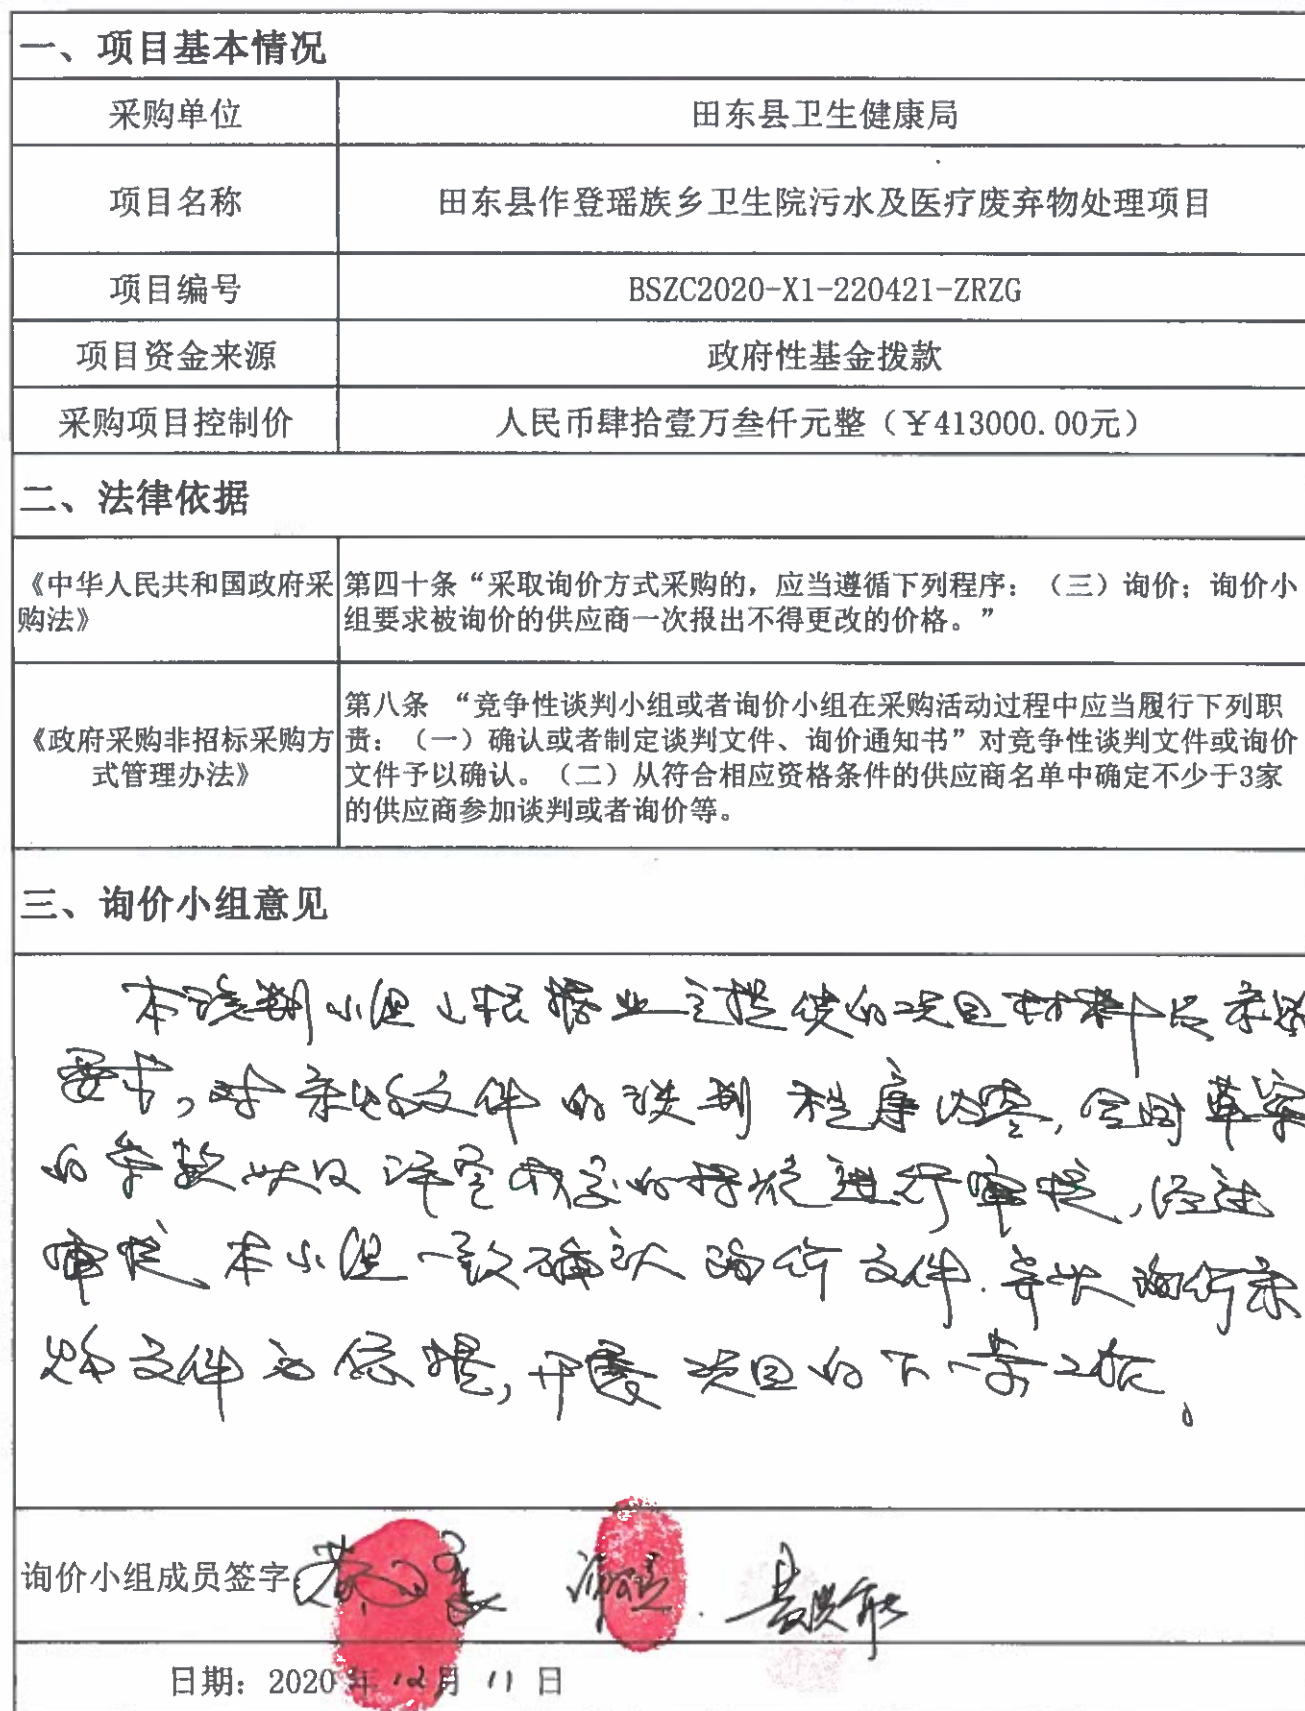 一、项目基本情况
采购单位 田东县卫生健康局
项目名称 田东县作登瑶族乡卫生院污水及医疗废弃物处理项目
项目编号 BSZC2020-X1-220421-ZRZG
项目资金来源 政府性基金拨款
采购项目控制价 人民币肆拾壹万叁仟元整（￥413000.00元）
二、法律依据
《中华人民共和国政府采
购法》
第四十条“采取询价方式采购的，应当遵循下列程序：（三）询价；询价小
组要求被询价的供应商一次报出不得更改的价格。”
《政府采购非招标采购方
式管理办法》
第八条 “竞争性谈判小组或者询价小组在采购活动过程中应当履行下列职
责：（一）确认或者制定谈判文件、询价通知书”对竞争性谈判文件或询价
文件予以确认。（二）从符合相应资格条件的供应商名单中确定不少于3家
的供应商参加谈判或者询价等。
三、询价小组意见
本谈判小组根据业主提供的项目材料及采购
要求，对采购文件的谈判程序内容，合同草案
的条款以及评定成交的标准进行审核，经过
审核，本小组一致确认询价文件．并以询价采
购文件为依据，开展项目的下一步工作。
询价小组成员签字
日期：2020年12月11日